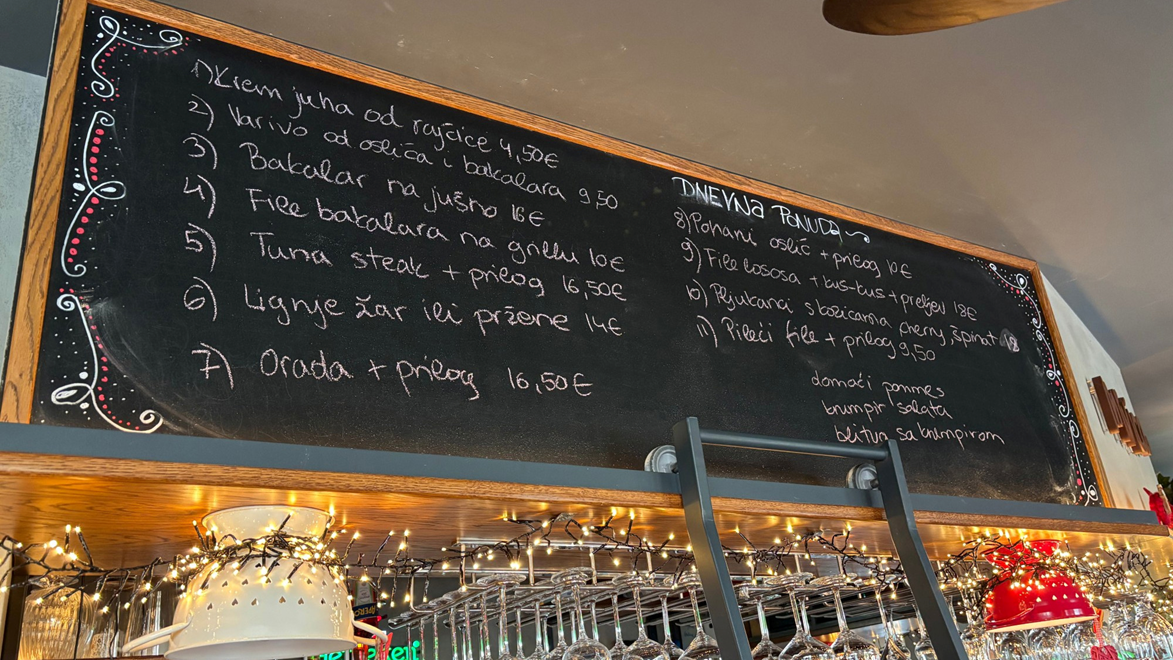 1) Krem juha od rajčice 4,50€
2) Varivo od oslića i bakalara 9,50
3) Bakalar na jušno 16€
4) File bakalara na grillu 10€
5) Tuna steak + prilog 16,50€
6) Lignje žar ili pržene 14€
7) Orada + prilog 16,50€
DNEVNA PONUDA
8) Pohani oslić + prilog 10€
9) File lososa + kus-kus + preljev 18€
10) Pljukanci s kozicama cherry špinat
11) Pileći file + prilog 9,50
domaći pommes
krumpir salata
blitva sa krumpirom